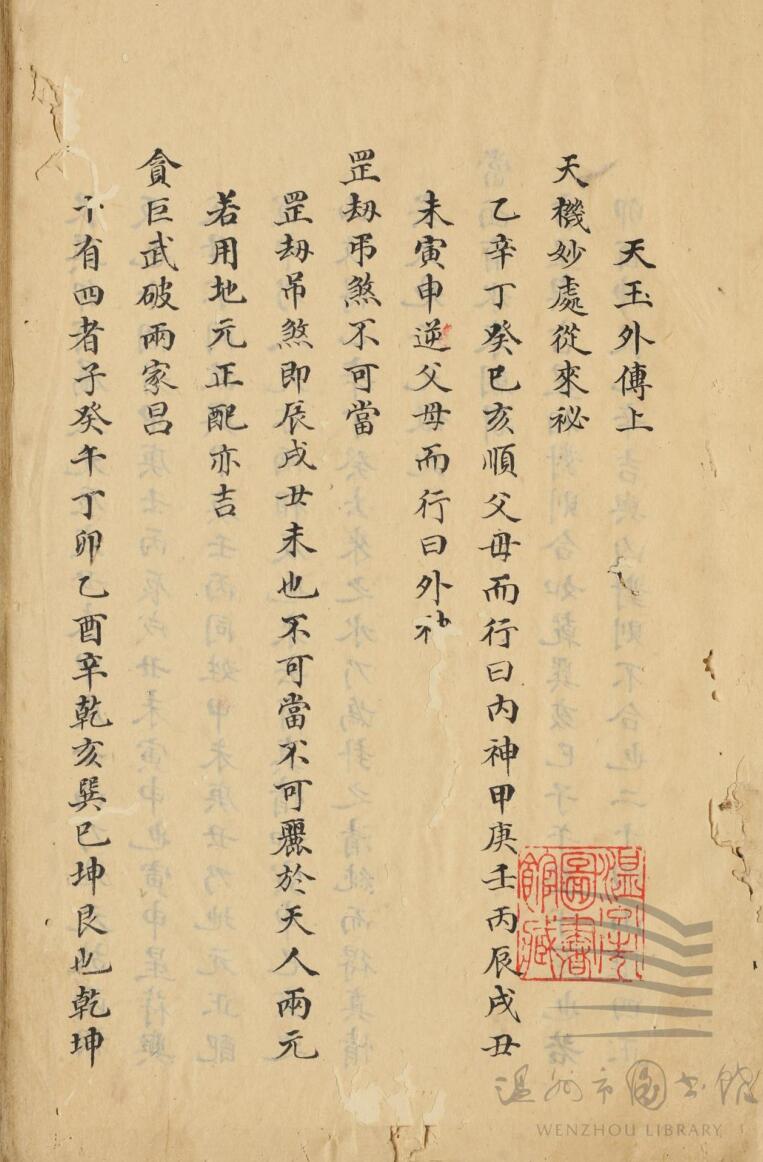 天玉外傳上
天機妙處從來祕
乙辛丁癸巳亥順父母而行曰內神甲庚壬丙辰戌丑
未寅申逆父母而行曰外神
罡刼吊煞不可當
罡刼吊煞即辰戌丑未也不可當不可麗於天人兩元
若用地元正配亦吉
貪巨武破兩家呂
十有四者子癸午丁卯乙酉辛乾亥巽巳坤艮也乾坤
溫州市圖書館藏
温州市图书馆
WENZHOU LIBRARY